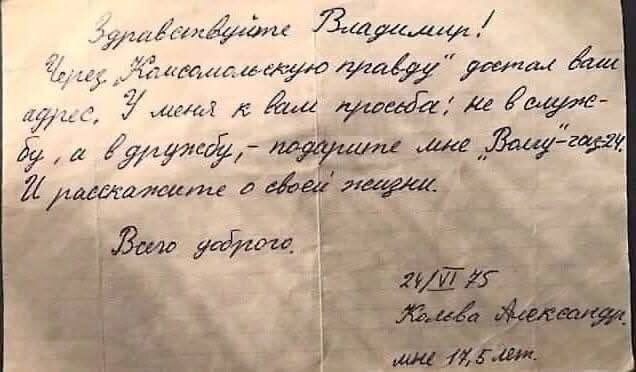 Здравствуйте Владимир!
Через "Комсомольскую правду" достал ваш
адрес. У меня к вам просьба: не в служ-
бу, а в дружбу, - подарите мне "Волгу" - газ-24.
И расскажите о своей жизни.
Всего доброго.
24/VI 75
Кольва Александр.
мне 17,5 лет.